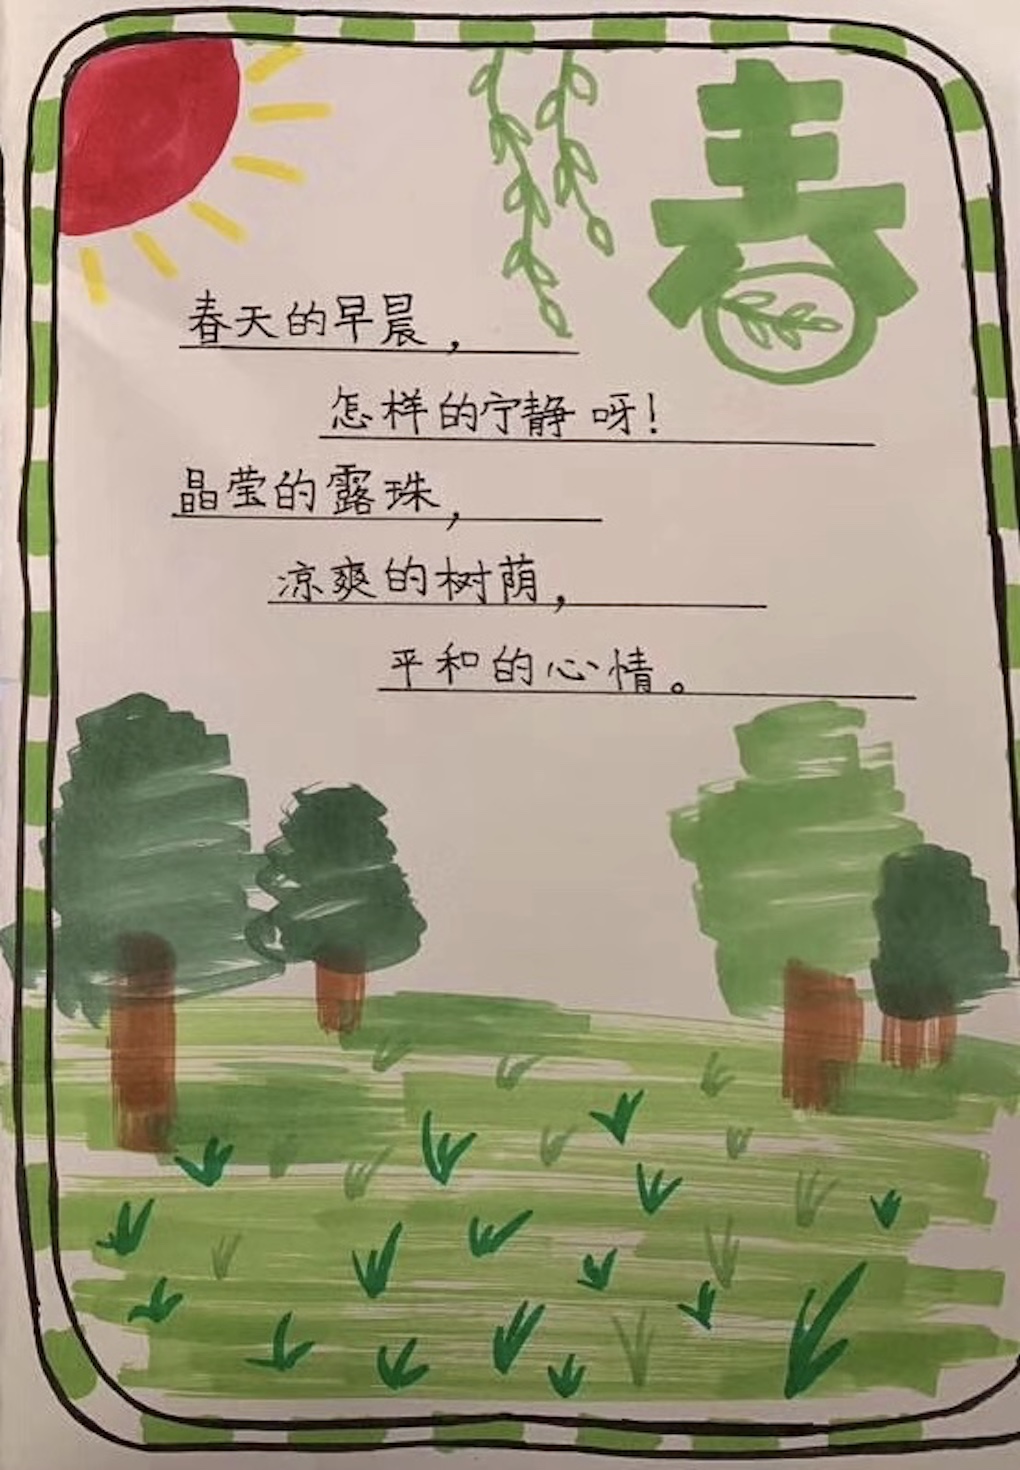 春
春天的早晨，
怎样的宁静呀！
晶莹的露珠，
凉爽的树荫，
平和的心情。